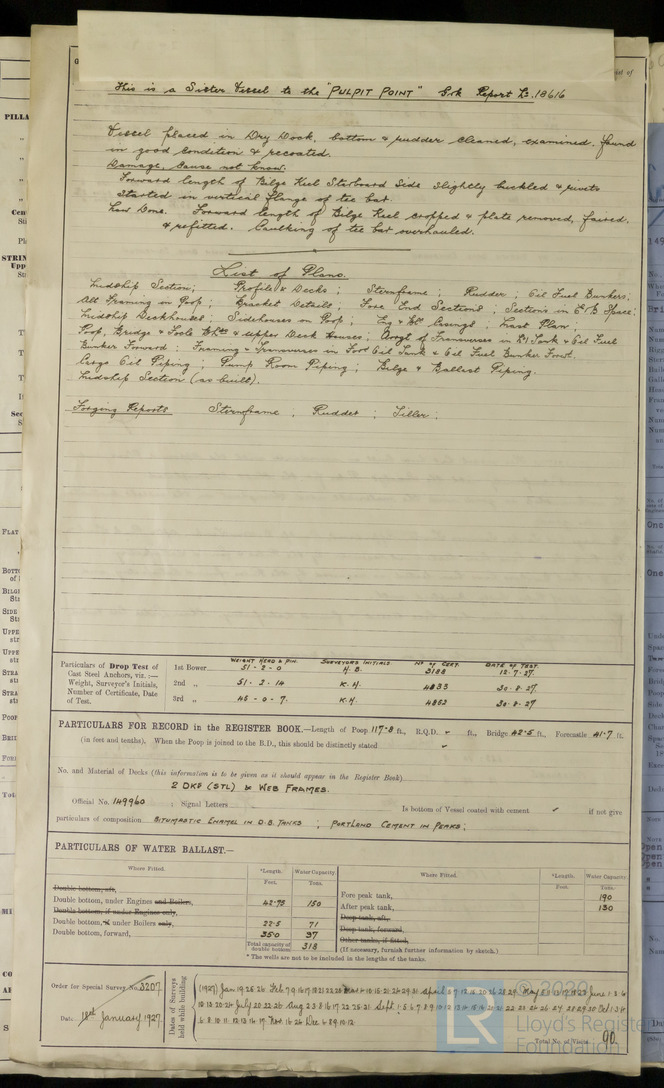 This is a Sister Vessel to the "PULPIT POINT" Grk Report No. 18616
Vessel placed in Dry Dock, bottom & rudder cleaned, examined, found
in good condition & recoated.
Damage, cause not know.
Forward length of Bilge Keel Starboard Side slightly buckled & rivets
started in vertical flange of tee bar.
Now Done. Forward length of Bilge Keel cropped & plate removed, faired,
& refitted. Caulking of tee bar overhauled.
List of Plans.
Midship Section; Profile & Decks; Sternframe; Rudder; Oil Fuel Bunkers;
All Framing in Poop; Bracket Details; Fore End Sections; Sections in E & B Space;
Midship Deckhouses; Sidehouses in Poop; Eng & Blr Casings; Mast Plan;
Poop, Bridge & Focle & Upper Deck Houses; Arrgt of Transverses in No 1 Tank & Oil Fuel
Bunker Forward; Framing & Transverses in Ford Oil Tank & Oil Fuel Bunker Forwd.
Cargo Oil Piping; Pump Room Piping; Bilge & Ballast Piping.
Midship Section (as built).
Forging Reports Sternframe; Rudder; Tiller;
Particulars of Drop Test of Cast Steel Anchors, viz.:— Weight, Surveyor's Initials, Number of Certificate, Date of Test.
WEIGHT HEAD & PIN. SURVEYORS INITIALS No OF CERT. DATE OF TEST.
1st Bower 51-2-0 H.B. 3188 12-7-27.
2nd „ 51-2-14 K.H. 4833 30-8-27.
3rd „ 45-0-7. K.H. 4852 30-8-27
PARTICULARS FOR RECORD in the REGISTER BOOK.—Length of Poop 117·8 ft., R.Q.D. ✓ ft., Bridge 42·5 ft., Forecastle 41·7 ft.
(in feet and tenths). When the Poop is joined to the B.D., this should be distinctly stated ✓
No. and Material of Decks (this information is to be given as it should appear in the Register Book)
2 DKS (STL) & WEB FRAMES.
Official No. 149960 : Signal Letters Is bottom of Vessel coated with cement ✓ if not give
particulars of composition BITUMASTIC ENAMEL IN D.B. TANKS ; PORTLAND CEMENT IN PEAKS;
PARTICULARS OF WATER BALLAST.—
Where Fitted. *Length. Water Capacity. Where Fitted. *Length. Water Capacity
Feet. Tons. Feet. Tons.
Double bottom, aft,
Double bottom, under Engines and Boilers, 42·75 150
Double bottom, if under Engines only,
Double bottom, if under Boilers only, 22·5 71
Double bottom, forward, 35·0 97
Total capacity of double bottom 318
Fore peak tank, 190
After peak tank, 130
Deep tank, aft,
Deep tank, forward,
Other tanks, if fitted,
(If necessary, furnish further information by sketch.)
* The wells are not to be included in the lengths of the tanks.
Order for Special Survey No. 3207
Date 18th January 1927.
Dates of Surveys held while building
Total No. of Visits 90
© 2020
LR
Lloyd's Register
Foundation